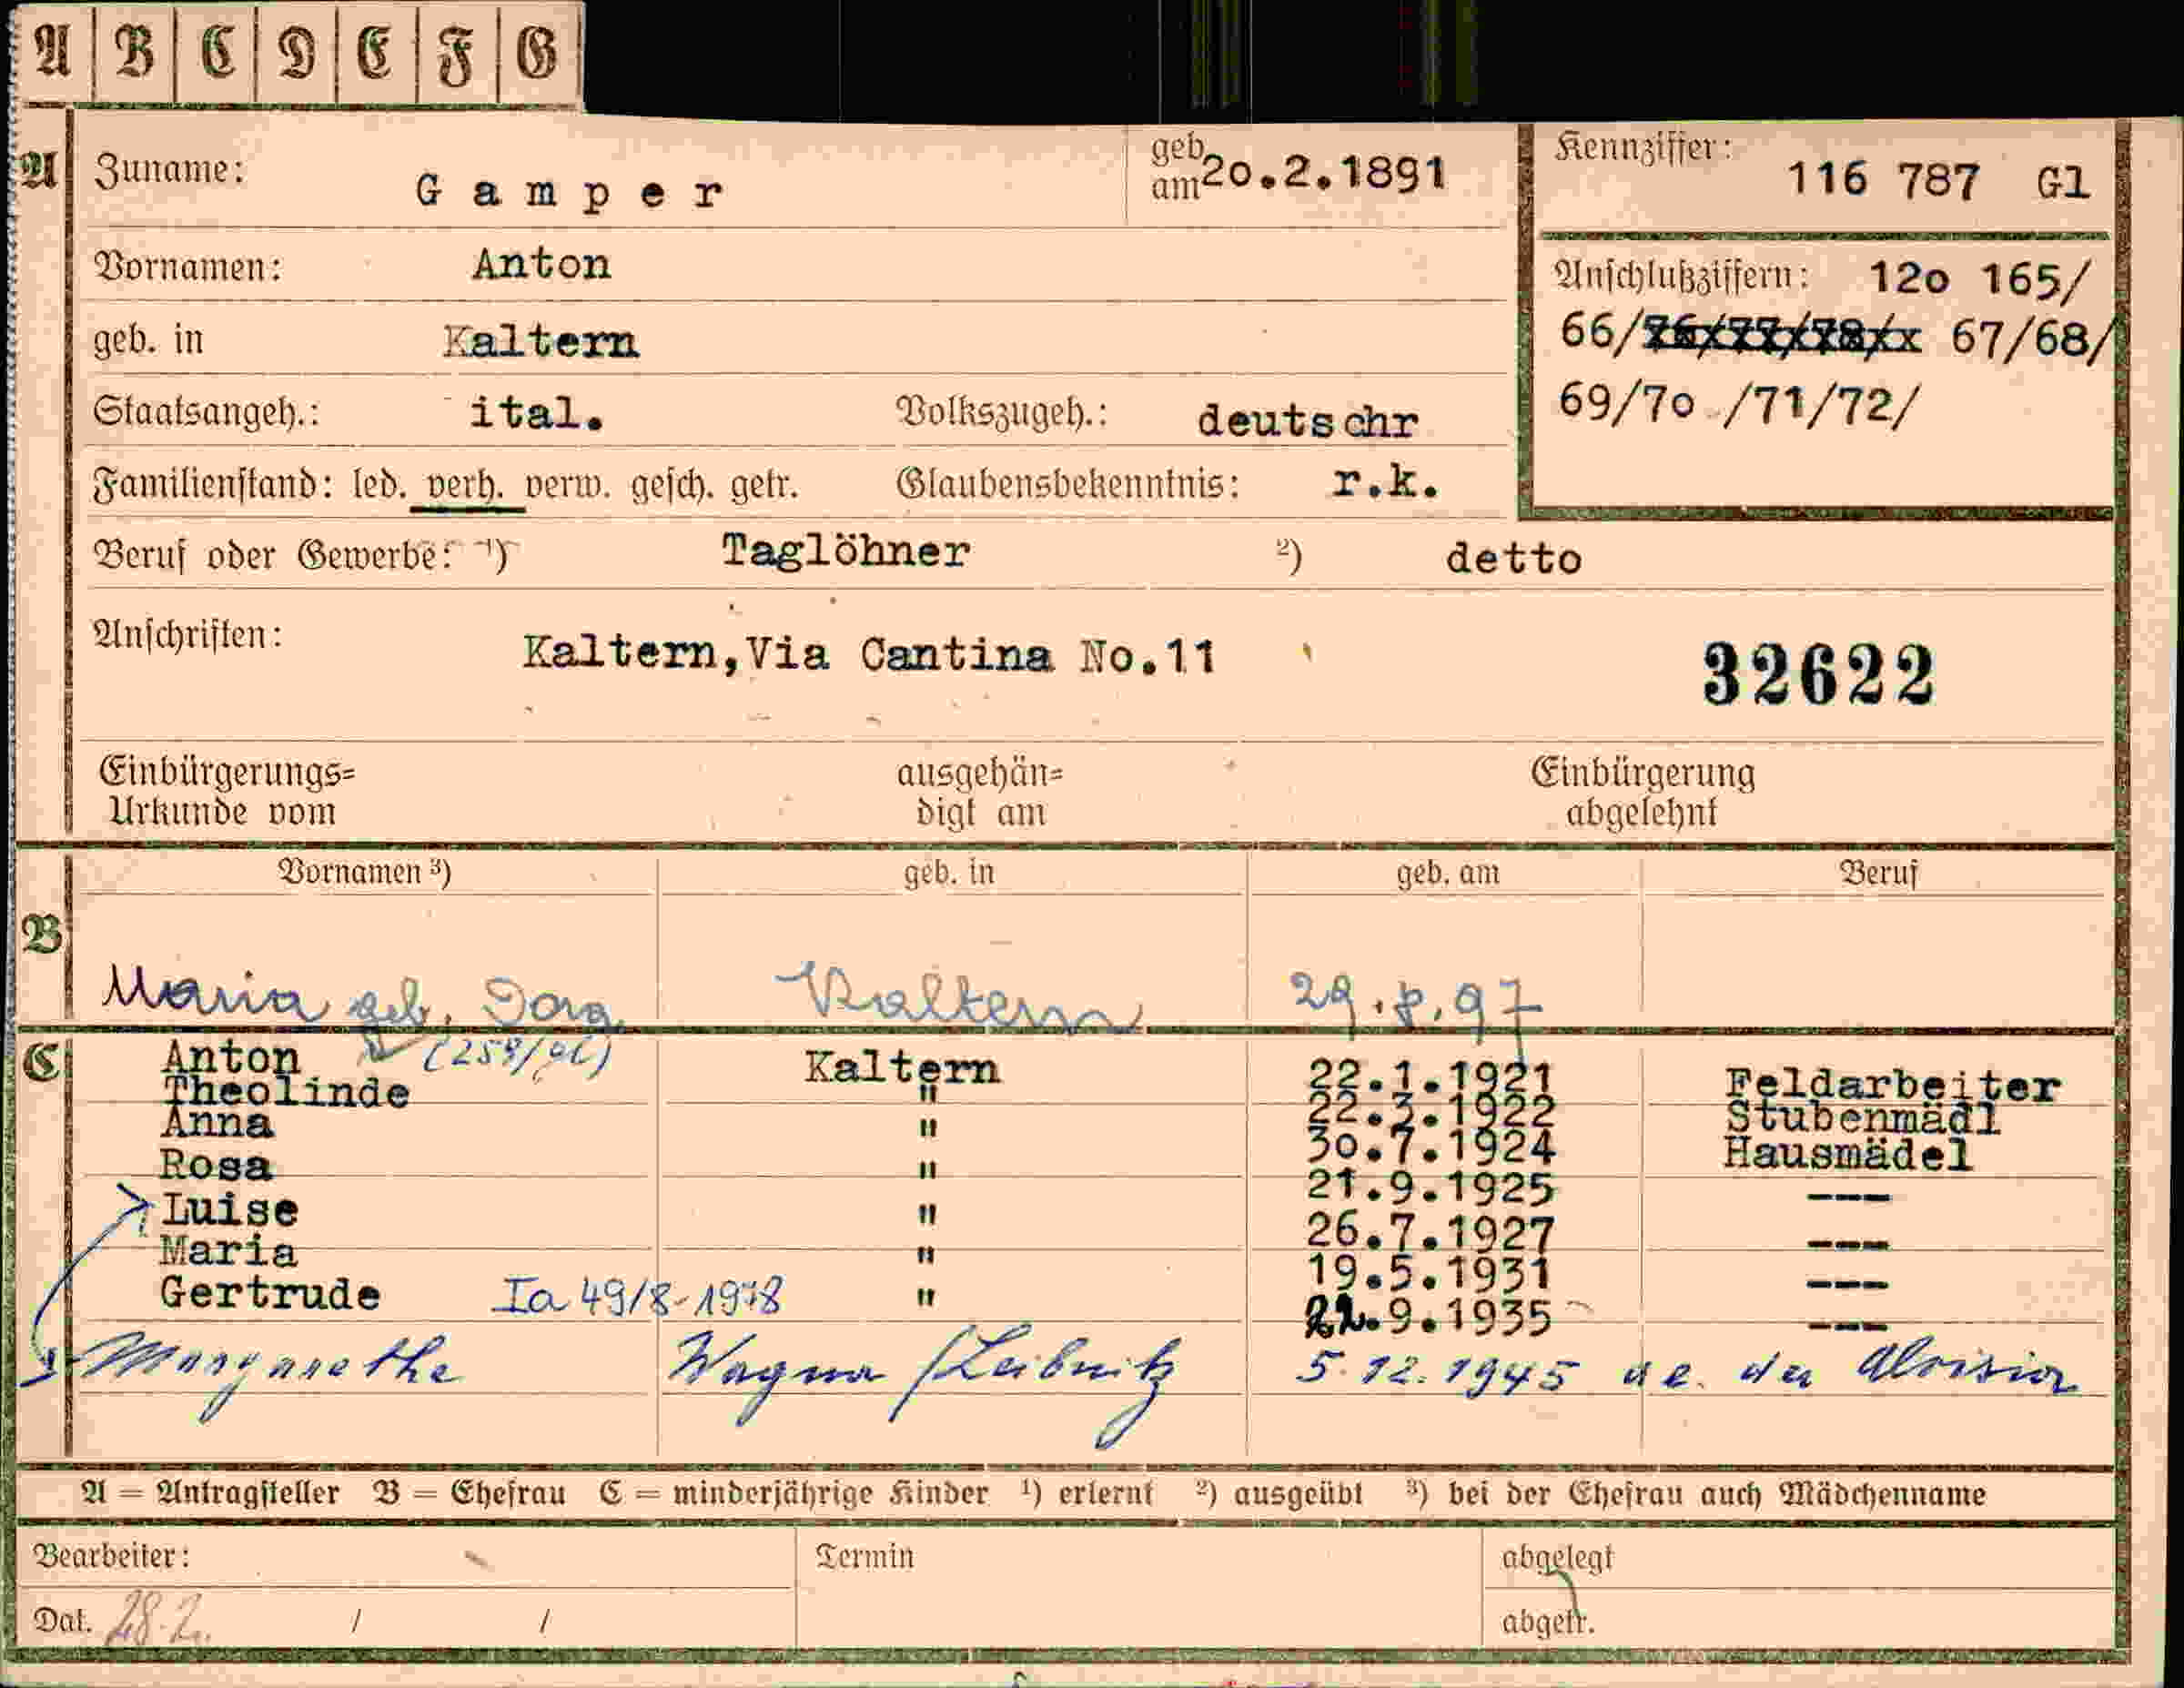 A B C D E F G
A Zuname: Gamper geb. am 20.2.1891 Kennziffer: 116 787 Gl
Vornamen: Anton Anschlußziffern: 12o 165/
geb. in Kaltern 66/ 67/68/
Staatsangeh.: ital. Volkszugeh.: deutschr 69/7o /71/72/
Familienstand: led. verh. verw. gesch. getr. Glaubensbekenntnis: r.k.
Beruf oder Gewerbe: ¹) Taglöhner ²) detto
Anschriften: Kaltern,Via Cantina No.11 32622
Einbürgerungs= ausgehän= Einbürgerung
Urkunde vom digt am abgelehnt
Vornamen ³) geb. in geb. am Beruf
B
Maria geb. Kaltern 29.8.97
C Anton Kaltern 22.1.1921 Feldarbeiter
Theolinde " 22.3.1922 Stubenmädl
Anna " 3o.7.1924 Hausmädel
Rosa " 21.9.1925 ---
Luise " 26.7.1927 ---
Maria " 19.5.1931 ---
Gertrude Ia 49/8- " 9.1935 ---
Margarethe Wagna /Leibnitz 5.12.1945 der
A = Antragsteller B = Ehefrau C = minderjährige Kinder ¹) erlernt ²) ausgeübt ³) bei der Ehefrau auch Mädchenname
Bearbeiter: Termin abgelegt
Dat. 28.2. / / abgetr.